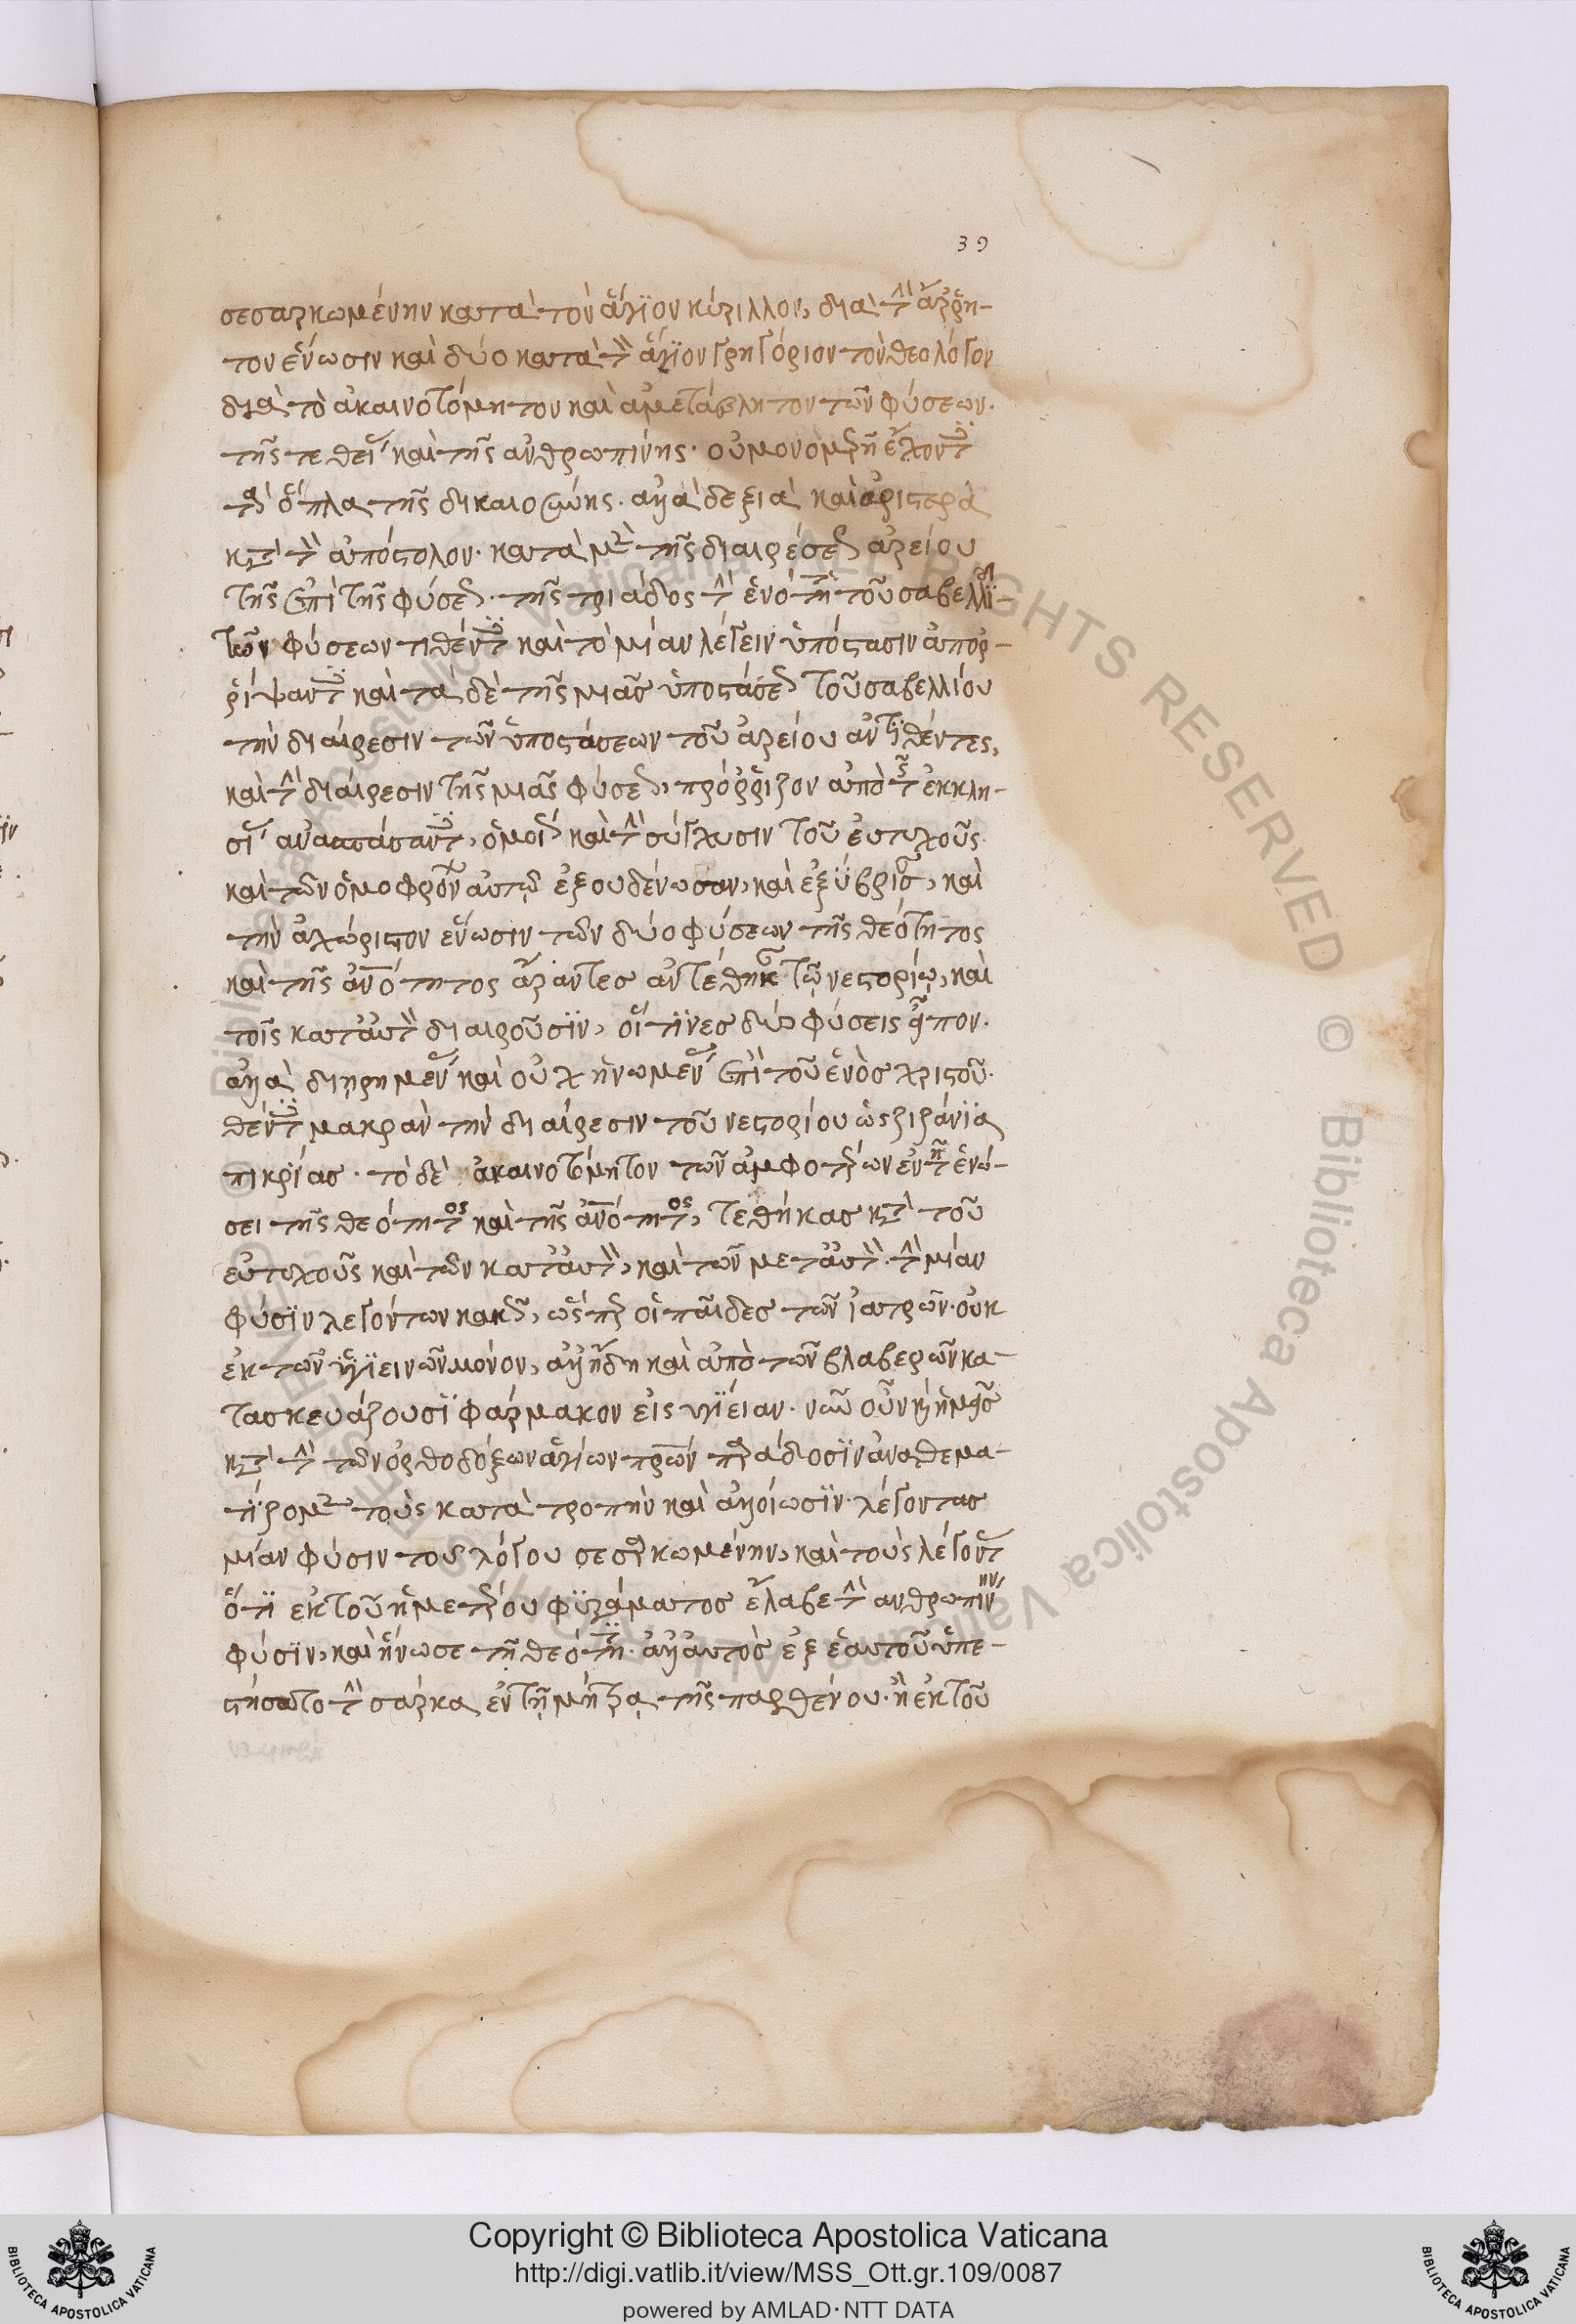 39
σεσαρκωμένην κατὰ τὸν ἅγϊον κύριλλον, διὰ τὴν ἄρρη-
τον ἕνωσιν καὶ δύο κατὰ τὸν ἅγϊον γρηγόριον τὸν θεολόγον
διὰ τὸ ἀκαινοτόμητον καὶ ἀμετάβλητον τῶν φύσεων.
τῆς τε θείας καὶ τῆς ἀνθρωπίνης. οὐ μονομερῆ ἔχοντες
τὰ ὅπλα τῆς δικαιοσύνης. ἀλλὰ δεξιὰ καὶ ἀριστερὰ
κατὰ τὸν ἀπόστολον. κατὰ μὲν τῆς διαιρέσεως ἀρείου
τῆς ἐπὶ τῆς φύσεως. τῆς τριάδος τὴν ἑνότητα τοῦ σαβελλΐου
τῶν φύσεων τιθέντες καὶ τὸ μίαν λέγειν ὑπόστασιν ἀπορ-
ρίψαντες καὶ τὰ δὲ τῆς μιᾶς ὑποστάσεως τοῦ σαβελλίου
τὴν διαίρεσιν τῶν ὑποστάσεων τοῦ ἀρείου ἀντϊθέντες,
καὶ τὴν διαίρεσιν τῆς μιᾶς φύσεως, πρόρριζον ἀπὸ τῆς ἐκκλη-
σίας ἀνασπάσαντες, ὁμοίως καὶ τὴν σύγχυσιν τοῦ εὐτυχοῦς
καὶ τῶν ὁμοφρόνων αὐτῷ ἐξουδένωσαν, καὶ ἐξΰβρισαν, καὶ
τὴν ἀχώριστον ἕνωσιν τῶν δύο φύσεων τῆς θεότητος
καὶ τῆς ἀνότητος ἄραντες ἀντέθηκαν τῷ νεστορίῳ, καὶ
τοῖς κατ' αὐτὸν διαιροῦσϊν, οἵτϊνες δύο φύσεις εἶπον.
ἀλλὰ διῃρημένας καὶ οὐχ ἡνωμένας ἐπὶ τοῦ ἑνὸς χριστοῦ.
θέντες μακρὰν τὴν διαίρεσιν τοῦ νεστορίου ὡς ζιζάνϊα
πικρίας. τὸ δὲ ἀκαινοτόμητον τῶν ἀμφοτέρων ἐν τῇ ἑνώ-
σει τῆς θεότητος καὶ τῆς ἀνότητος, τεθήκασ κατὰ τοῦ
εὐτυχοῦς καὶ τῶν κατ' αὐτὸν, καὶ τῶν μετ' αὐτὸν. τὴν μίαν
φύσϊν λεγόντων κακῶς, ὥσπερ οἱ παῖδες τῶν ἰατρῶν. οὐκ
ἐκ τῶν ὑγϊεινῶν μόνον, ἀλλ' ἤδη καὶ ἀπὸ τῶν βλαβερῶν κα-
τασκευάζουσϊ φάρμακον εἰς ὑγϊείαν. νῦν οὖν καὶ ἡμεῖς
κατὰ τὴν τῶν ὀρθοδόξων ἁγίων πρων παράδοσϊν ἀναθεμα-
τίζομεν τοὺς κατὰ τροπὴν καὶ ἀλλοίωσϊν λέγοντας
μίαν φύσιν τοῦ λόγου σεσαρκωμένην, καὶ τοὺς λέγοντας
ὅτϊ ἐκ τοῦ ἡμετέρου φϋράματος ἔλαβε τὴν ἀνθρωπίνην
φύσϊν, καὶ ἥνωσε τῇ θεότητι. ἀλλ' αὐτὸς ἐξ ἑαυτοῦ ὑπε-
στήσατο τὴν σάρκα ἐν τῇ μήτρᾳ τῆς παρθένου. ἢ ἐκ τοῦ
Copyright © Biblioteca Apostolica Vaticana
http://digi.vatlib.it/view/MSS_Ott.gr.109/0087
powered by AMLAD·NTT DATA